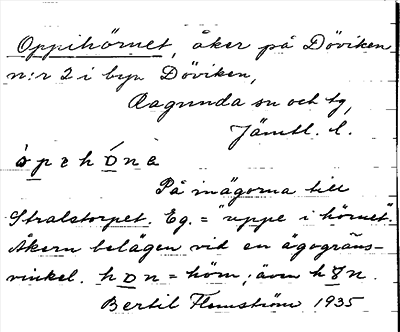 Oppihörnet, åker på Döviken
n:r 2 i byn Döviken,
Ragunda sn och tg,
Jämtl. l.
På inägorna till
Stralstorpet. Eg. = "uppe i hörnet".
Åkern belägen vid en ägogräns-
vinkel. hɒn = hörn; även h n.
Bertil Flemström 1935